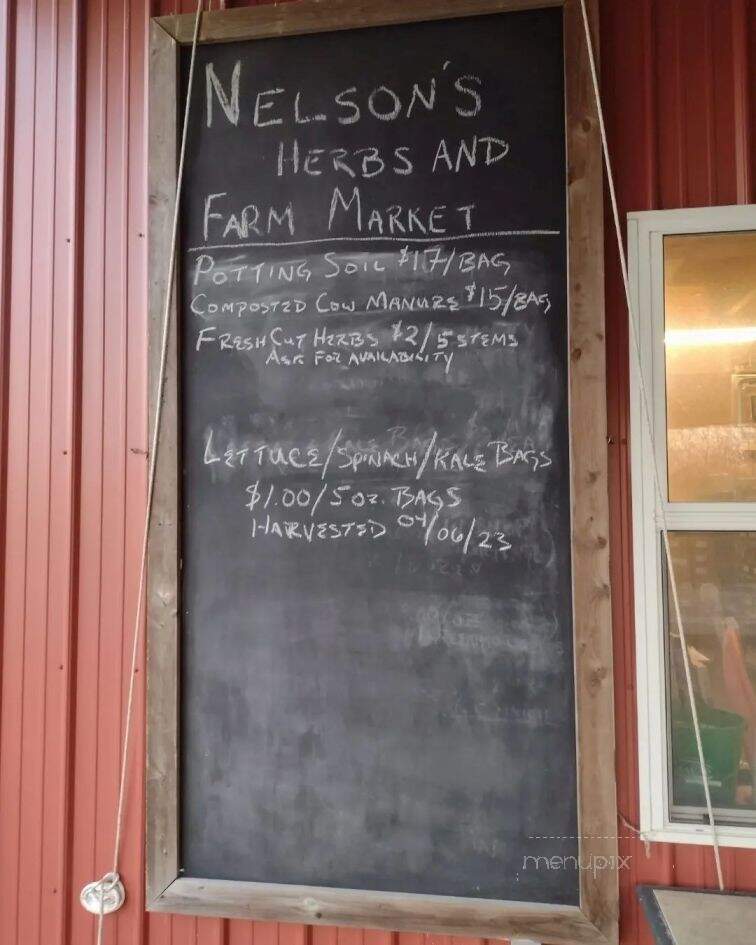 NELSON'S
HERBS AND
FARM MARKET
POTTING SOIL $17/BAG
COMPOSTED COW MANURE $15/BAG
FRESH CUT HERBS $2/5 STEMS
ASK FOR AVAILABILITY
LETTUCE/SPINACH/KALE BAGS
$1.00/5 OZ. BAGS
HARVESTED 04/06/23
menupix